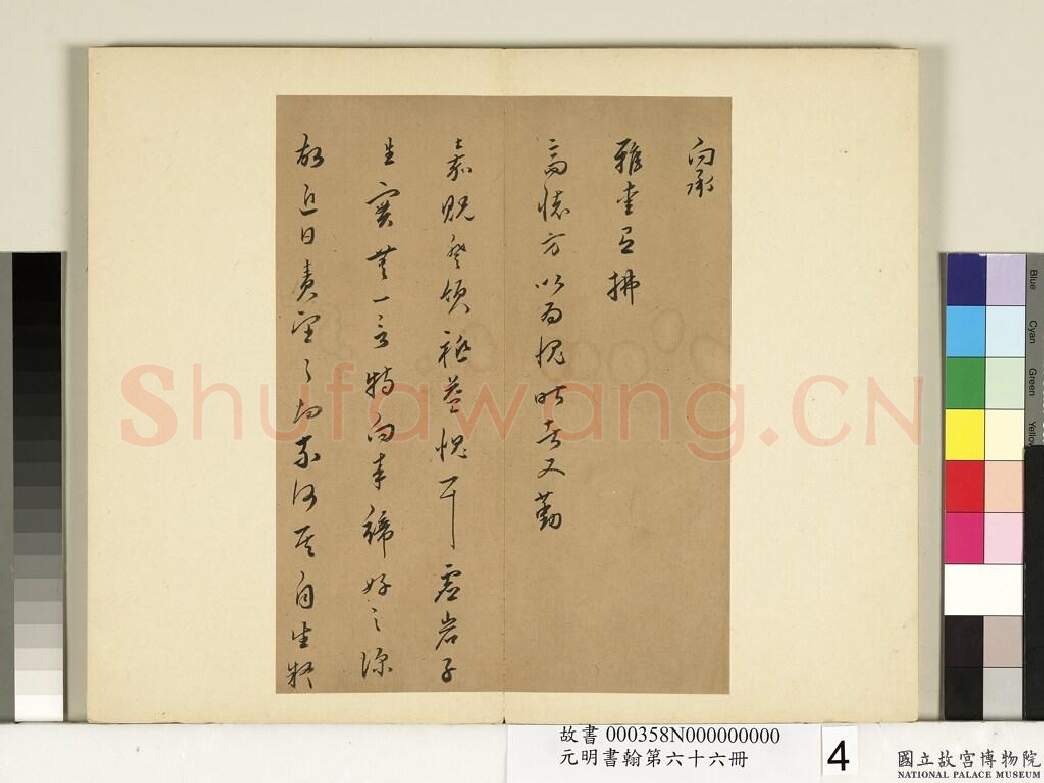 向承
雅重且拂
高懷方以為愧時去又勤
嘉貺登領祗益愧耳虛岩子
生實無一言特向來稱好之深
故近日責望之切奈何其自生疑
Shufawang.CN
故書 000358N000000000
元明書翰第六十六冊
4
國立故宮博物院
NATIONAL PALACE MUSEUM
Blue
Cyan
Green
Yellow